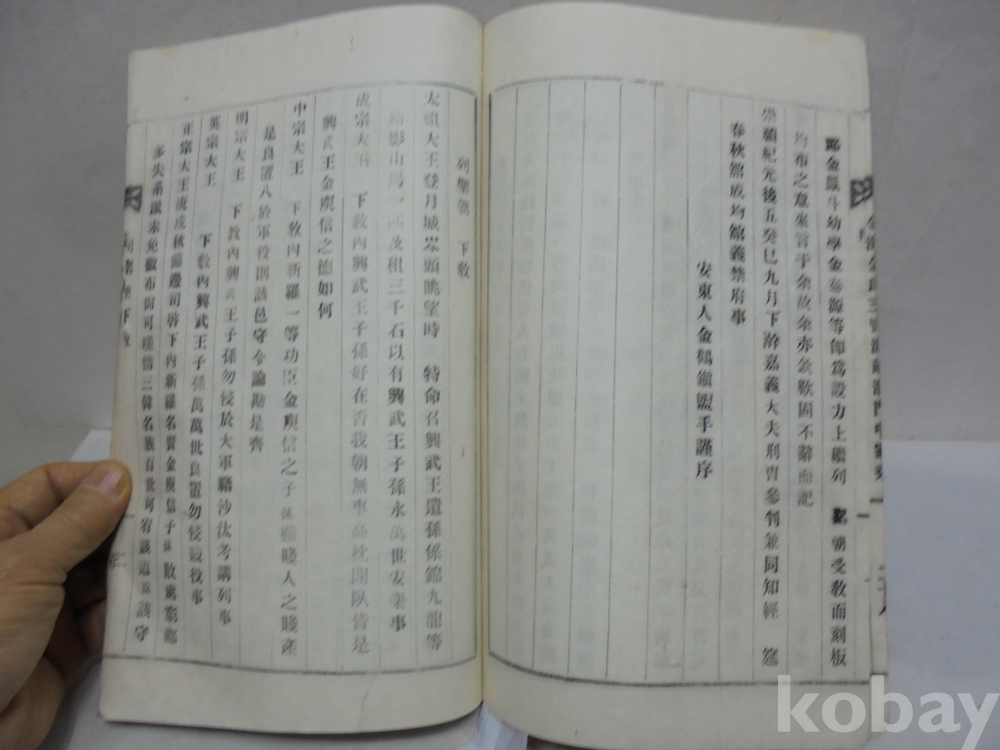 郞金鳳斗幼學金泰源等卽爲設力上繼列 聖 朝受敎面刻板
均布之意來言于余故余亦欽歎固不辭而記
崇禎紀元後五癸巳九月下澣嘉義大夫刑曹參判兼同知經 筵
春秋館成均館義禁府事
安東人金鶴鎭盥手謹序
列聖朝 下敎
太祖大王登月城岸頭眺望時 特命召興武王遺孫係錦九龍等
給影山馬一匹及租三千石以有興武王子孫永萬世安樂事
成宗大王 下敎內興武王子孫好在否我朝無事高枕閒臥皆是
興武王金庾信之德如何
中宗大王 下敎內新羅一等功臣金庾信之子孫雖賤人之賤產
是良置八於軍役則該邑守令論勘是齊
明宗大王 下敎內興武王子孫勿侵於大軍籍沙汰考講列事
英宗大王 下敎內興武王子孫萬萬世良置勿侵賤役事
正宗大王庚戌秋備邊司啓下內新羅名賢金庾信子孫散寓窮鄕
多失系派未免
三韓名族百世可宥該道並該守
列聖朝下敎
kobay